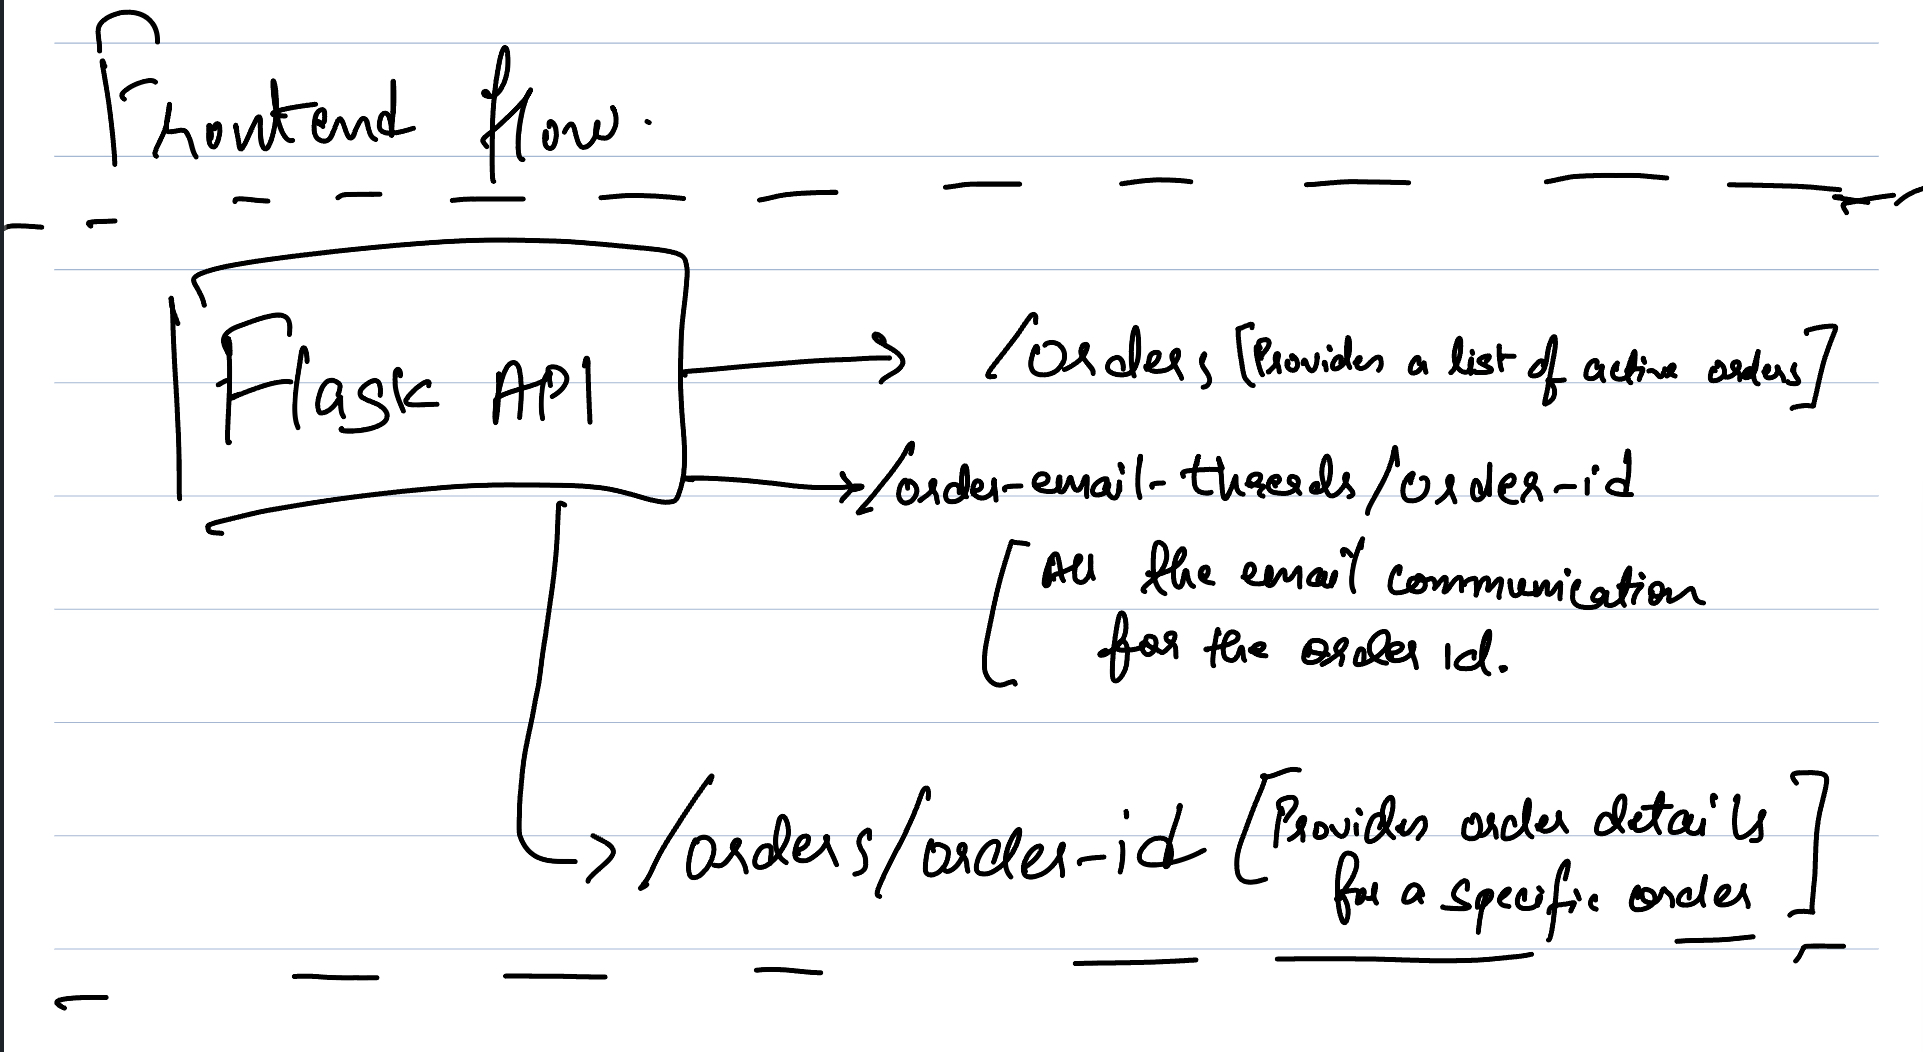 Frontend flow.
Flask API
/orders [Provides a list of active orders]
/order-email-threads/order-id
[All the email communication
for the order id.
/orders/order-id [Provides order details
for a specific order]